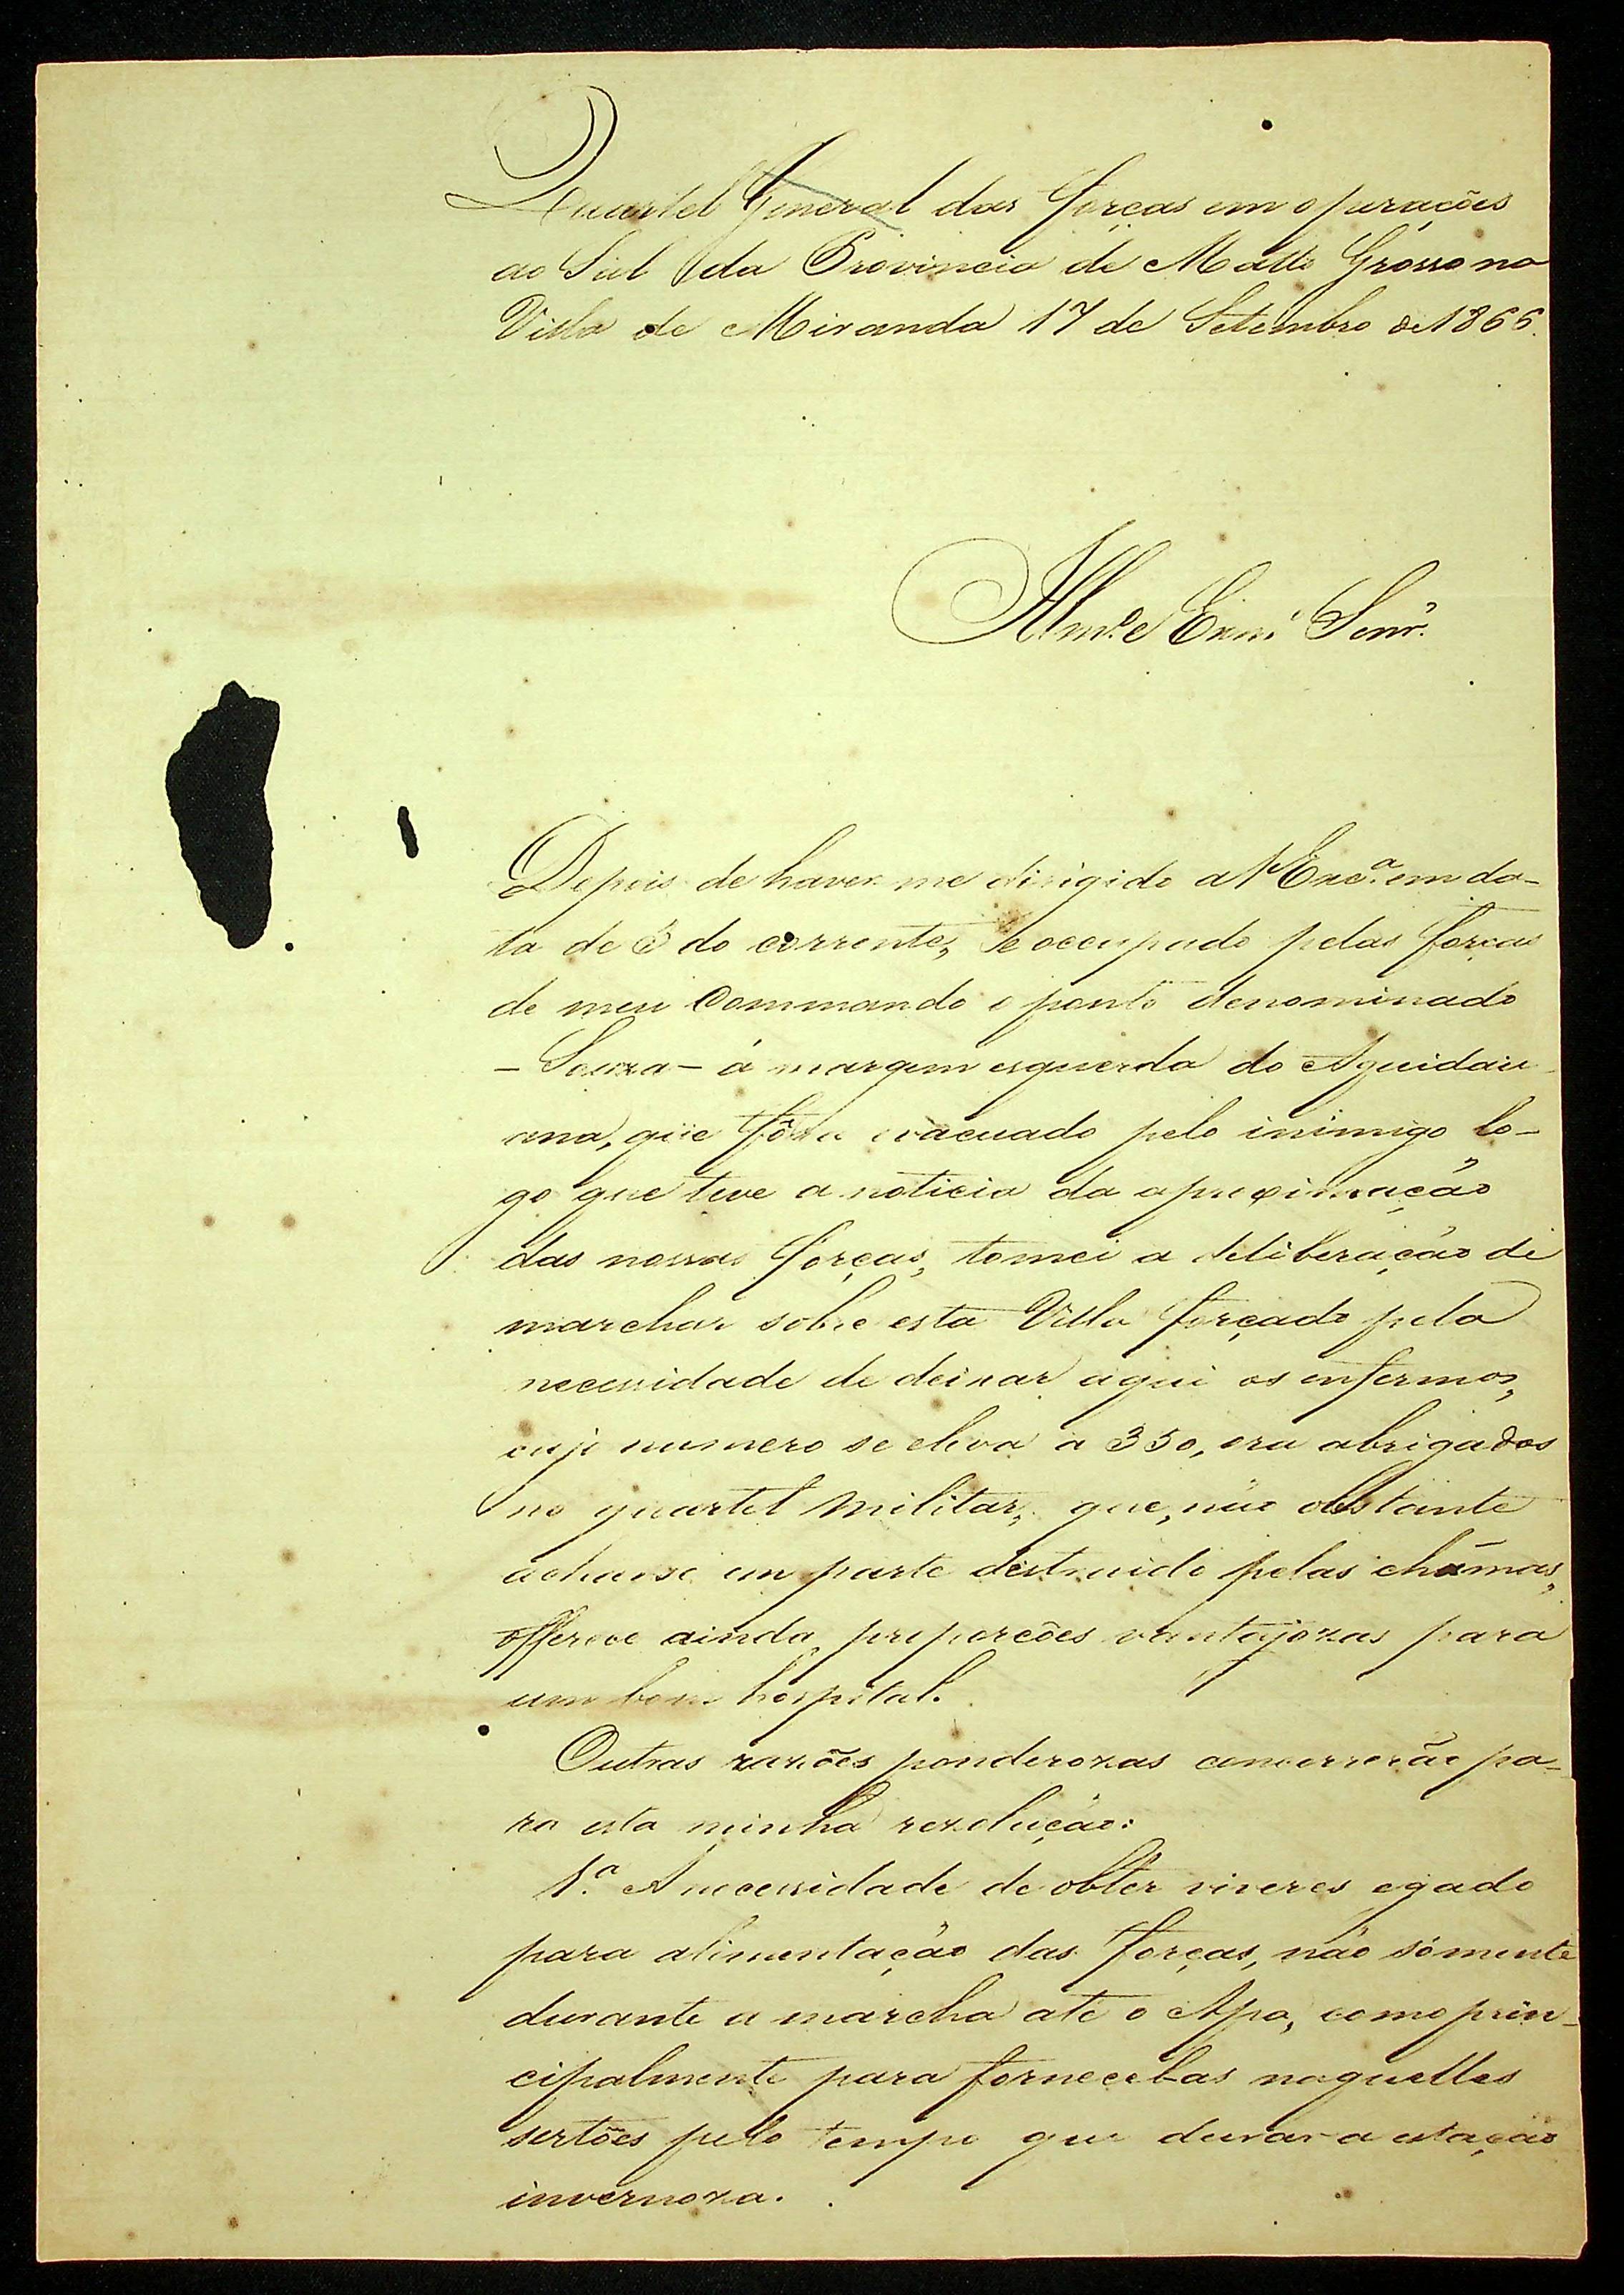 Quartel General das forças em operações
ao Sul da Provincia de Matto Grosso na
Villa de Miranda 17 de Setembro de 1866.
Illmo. e Exmo. Senr.
Depois de haver me dirigido a V Exca. em da-
ta de 6 do corrente, e occupado pelas forças
de meu Commando o ponto denominado
- Souza - á margem esquerda do Aquidau-
ana, que fôra evacuado pelo inimigo lo-
go que teve a noticia da aproximação
das nossas forças, tomei a deliberação de
marchar sobre esta Villa forçado pela
necessidade de deixar aqui os enfermos,
cujo numero se eleva a 350, ora abrigados
no quartel militar, que, não obstante
acharse em parte destruido pelas chámas,
offerece ainda proporcões vantajozas para
um bom hospital.
Outras razões ponderozas concorrerão pa-
ra esta minha rezolução:
1.a A necessidade de obter viveres e gado
para alimentação das forças, não sómente
durante a marcha até o Apa, como prin-
cipalmente para fornecelas naquelles
sertões pelo tempo que durar a estação
invernoza.